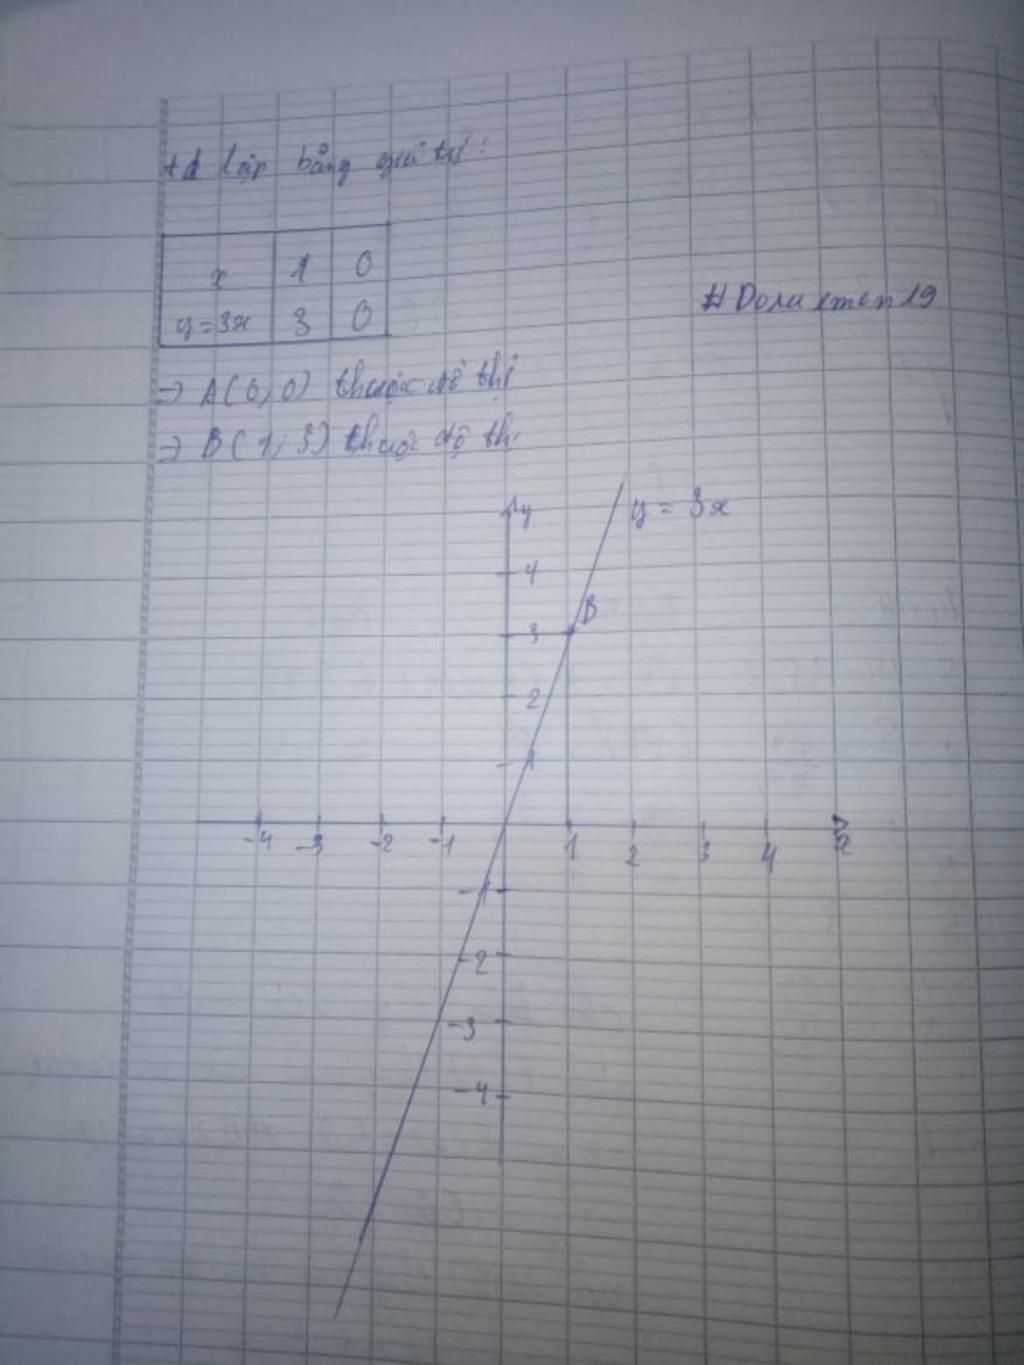 +d lập bảng giá trị:
x 1 0
y=3x 3 0
#Dorumon19
=> A(0,0) thuộc đồ thị
=> B(1,3) thuộc đồ thị
y y = 3x
4
B
3
2
1
-4 -3 -2 -1 1 2 3 4 x
-1
-2
-3
-4